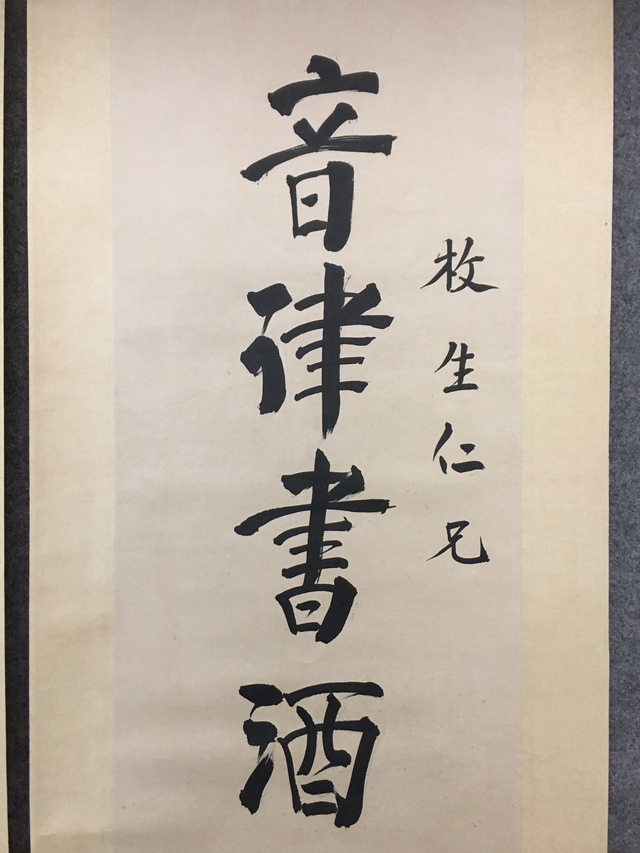 枚生仁兄
音律書酒